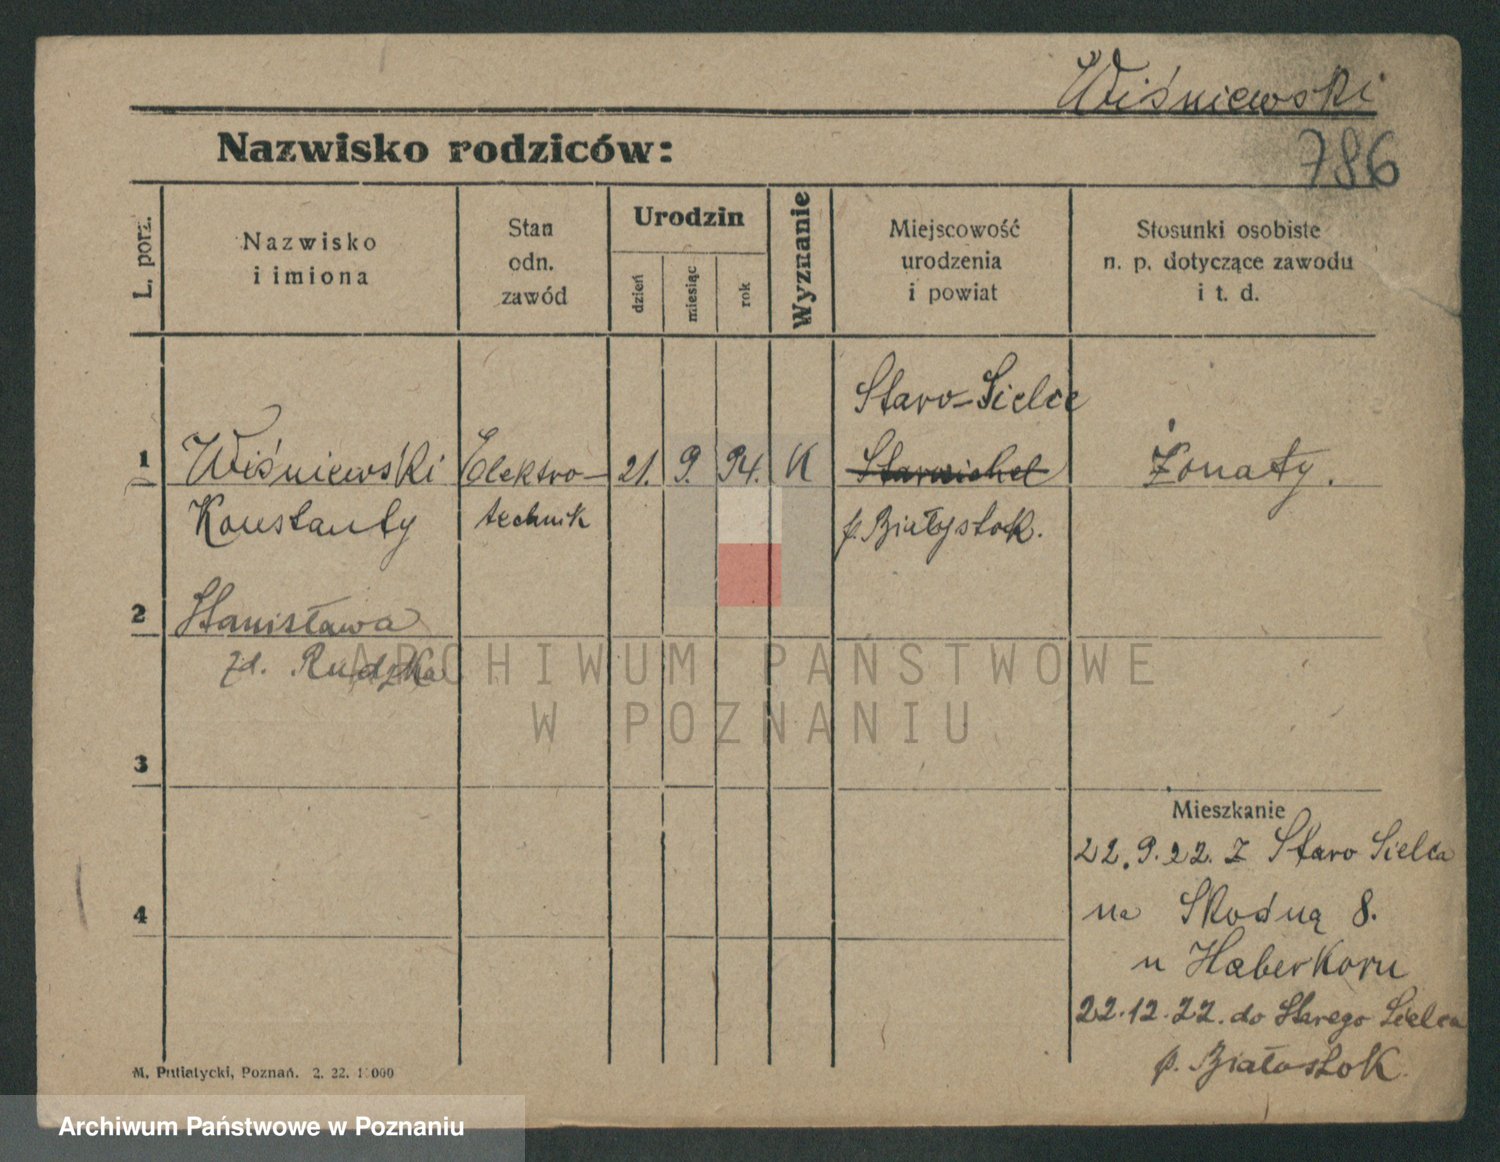 Wiśniewski
786
Nazwisko rodziców:
L. porz.
Nazwisko
i imiona
Stan
odn.
zawód
Urodzin
dzień
miesiąc
rok
Wyznanie
Miejscowość
urodzenia
i powiat
Stosunki osobiste
n. p. dotyczące zawodu
i t. d.
1
Wiśniewski
Konstanty
Elektro-
technik
21. 9. 94. K
Staro-Sielce
p. Białystok.
Żonaty.
2
Stanisława
zd. Rudzka
ARCHIWUM PAŃSTWOWE
W POZNANIU
3
4
Mieszkanie
22.9.22. z Staro Sielca
na Skośną 8.
u Haberkorn
22.12.22. do Starego Sielca
p. Białostok
M. Putiatycki, Poznań. 2. 22. 1 000
Archiwum Państwowe w Poznaniu